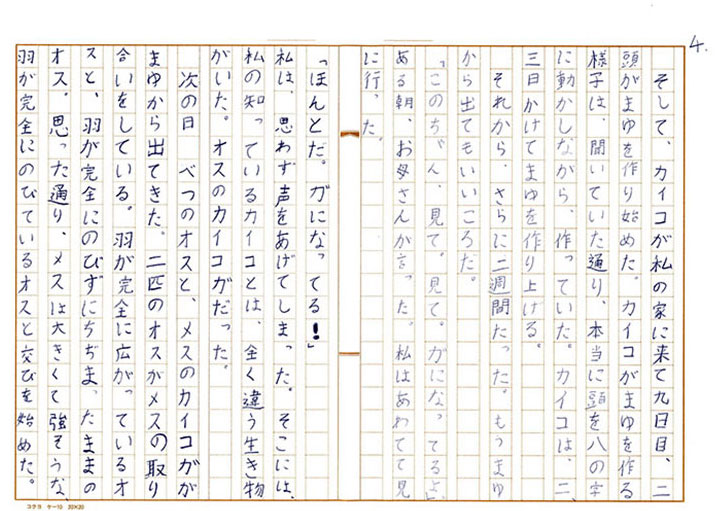 4.
そして、カイコが私の家に来て九日目、二
頭がまゆを作り始めた。カイコがまゆを作る
様子は、聞いていた通り、本当に頭を八の字
に動かしながら、作っていた。カイコは、二、
三日かけてまゆを作り上げる。
それから、さらに二週間たった。もうまゆ
から出てもいいころだ。
「このちゃん、見て。見て。ガになってるよ」
ある朝、お母さんが言った。私はあわてて見
に行った。
「ほんとだ。ガになってる!」
私は、思わず声をあげてしまった。そこには、
私の知っているカイコとは、全く違う生き物
がいた。オスのカイコガだった。
次の日 べつのオスと、メスのカイコガが
まゆから出てきた。二匹のオスがメスの取り
合いをしている。羽が完全に広がっているオ
スと、羽が完全にのびずにちぢまったままの
オス。思った通り、メスは大きくて強そうな
羽が完全にのびているオスと交びを始めた。
コクヨ ケー10 20×20